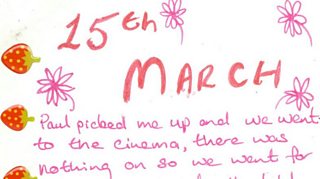 15th
MARCH
Paul picked me up and we went
to the cinema, there was
nothing on so we went for